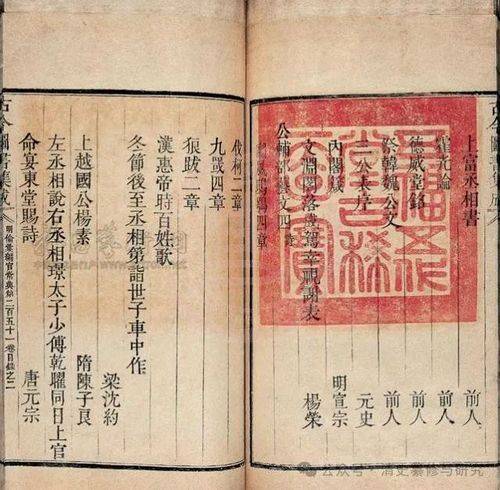 上富丞相書 前人
霍光論 前人
德威堂銘 前人
祭韓魏公文 前人
三公表序 元史
內閣箴 明宣宗
文淵閣落成駕幸觀謝表 楊榮
公輔部藝文四
五福五代堂古稀天子寶
伐柯二章
九罭四章
狼跋二章
漢惠帝時百姓歌
冬節後至丞相第詣世子車中作 梁沈約
上越國公楊素 隋陳子良
左丞相說右丞相璟太子少傅乾曜同日上官
命宴東堂賜詩 唐元宗
古今圖書集成 明倫彙編官常典第二百五十一卷目錄之二
公众号·清史纂修与研究